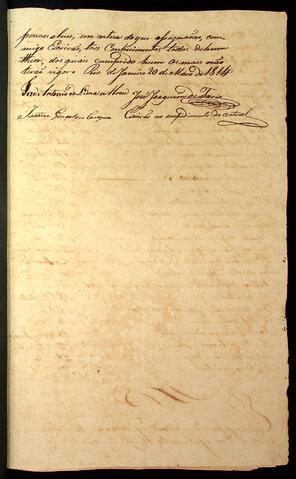 pessoas e bens, em certeza do que assignarão, com
migo Escrivão, tres Conhecimentos todos de hum
theor, dos quais cumprido hum os mais não
terão vigor. Rio de Janeiro 20 de Maio de 1814
José Antonio de Lima e Abreu José Joaquim de Faria
Escrivão no impedimento do actual